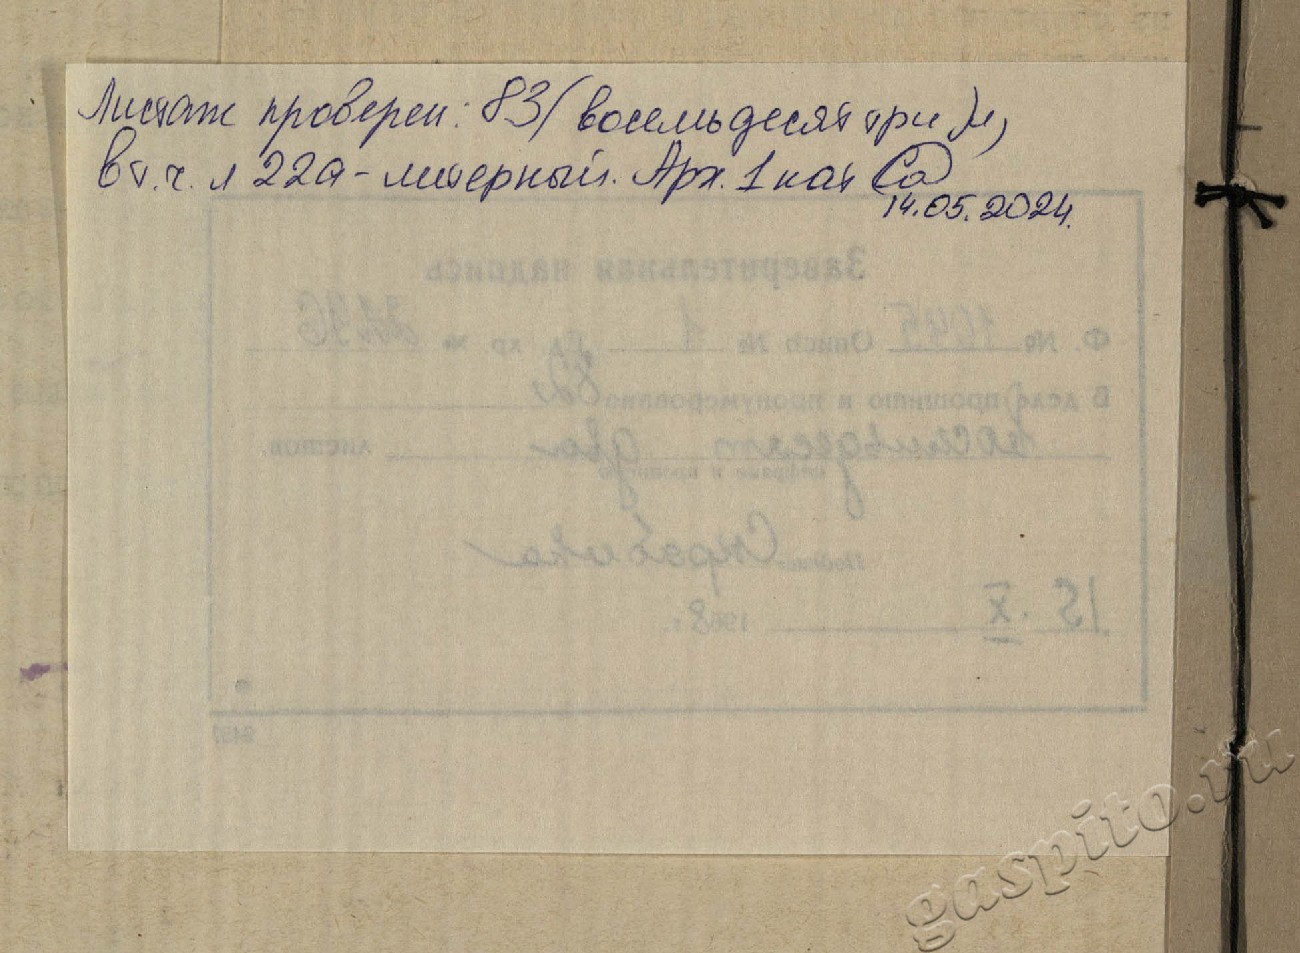 Листаж проверен: 83 (восемьдесят три) л,
в т.ч. л 22а - литерный. Арх. 1 кат
14.05.2024.
Заверительная надпись
Ф. № 1045 Опись № 1 хр №
В деле прошито и пронумеровано 82
восемьдесят два листов.
цифрами и прописью
Подпись
15. X 1968 г.
gaspito.ru